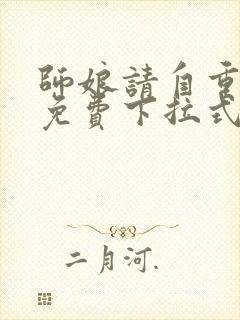 師娘請自重
免費下拉式
二月河.